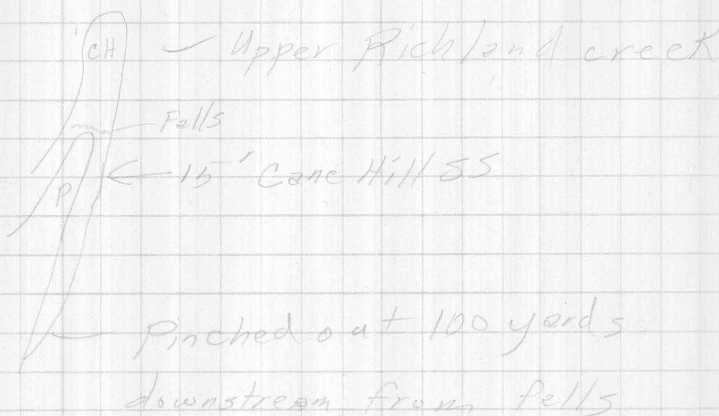 CH - Upper Richland creek
Falls
P
15' Cane Hill SS
Pinched out 100 yards
downstream from falls